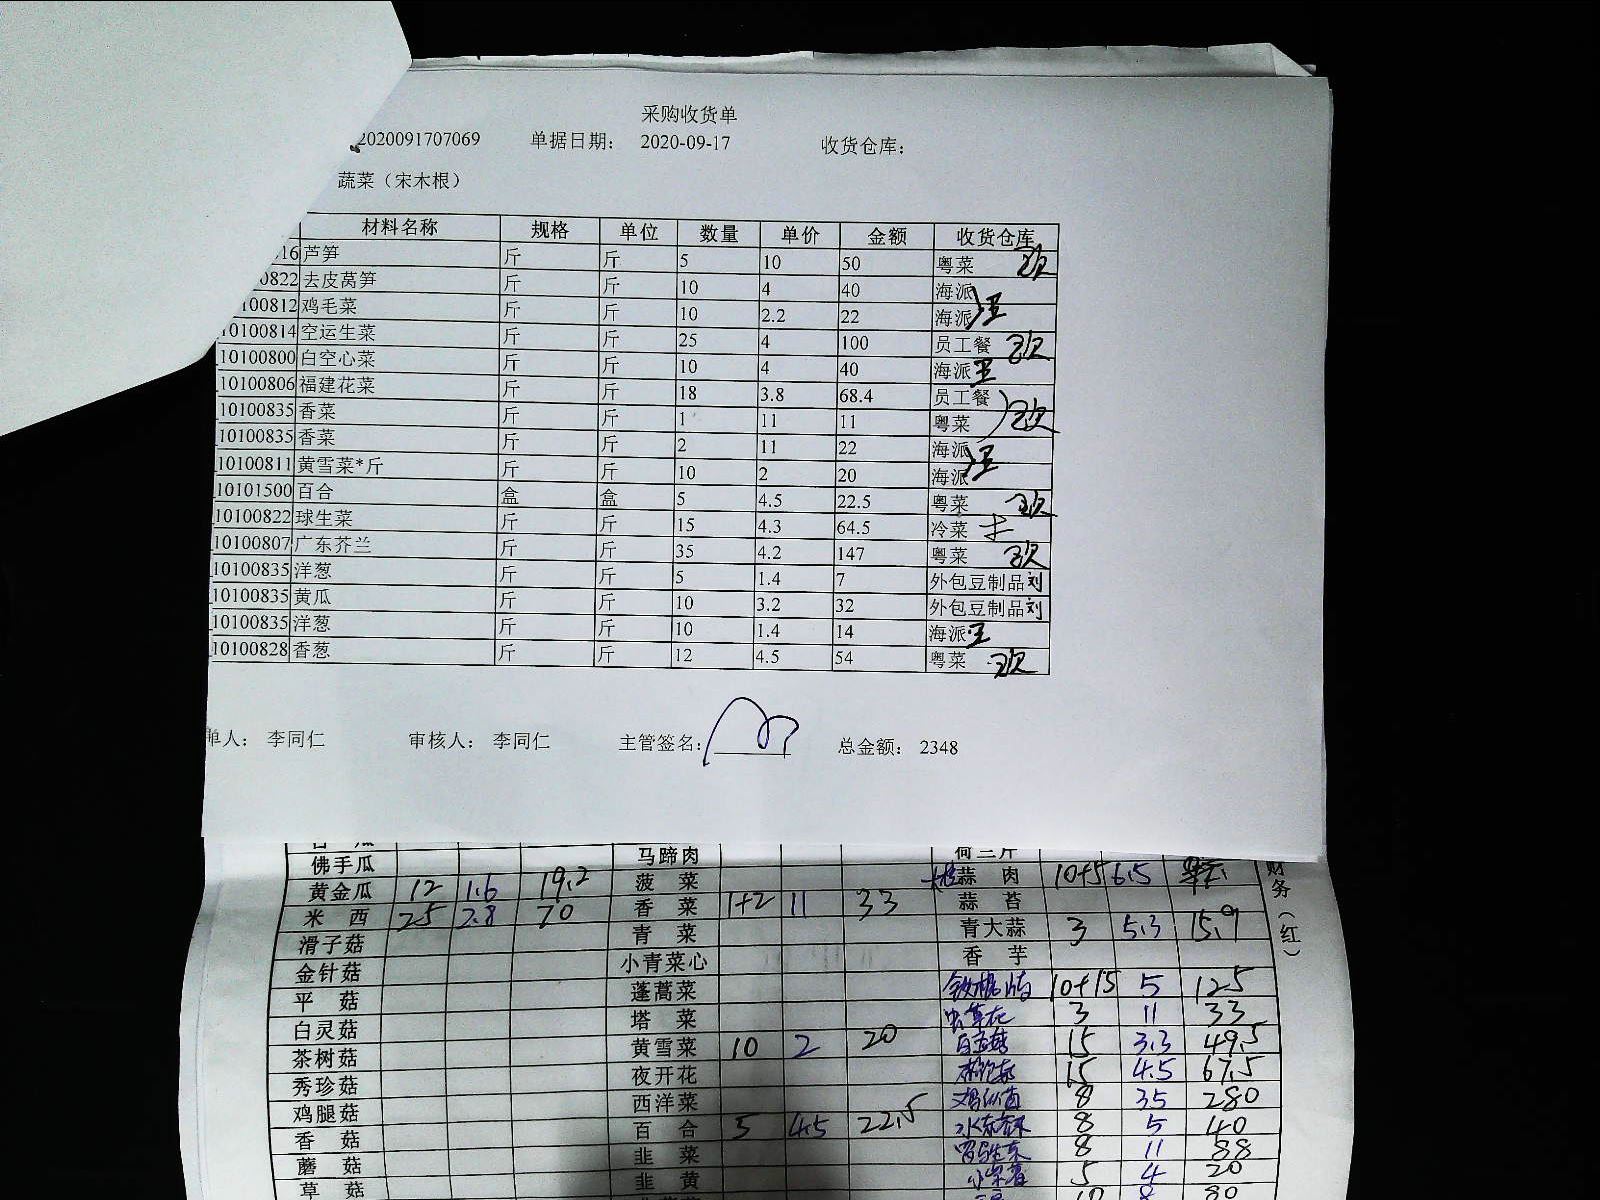 采购收货单
2020091707069 单据日期: 2020-09-17 收货仓库:
蔬菜（宋木根）
材料名称 规格 单位 数量 单价 金额 收货仓库
16 芦笋 斤 斤 5 10 50 粤菜
0822 去皮莴笋 斤 斤 10 4 40 海派
100812 鸡毛菜 斤 斤 10 2.2 22 海派 王
10100814 空运生菜 斤 斤 25 4 100 员工餐
10100800 白空心菜 斤 斤 10 4 40 海派 王
10100806 福建花菜 斤 斤 18 3.8 68.4 员工餐
10100835 香菜 斤 斤 1 11 11 粤菜
10100835 香菜 斤 斤 2 11 22 海派 王
10100811 黄雪菜*斤 斤 斤 10 2 20 海派
10101500 百合 盒 盒 5 4.5 22.5 粤菜
10100822 球生菜 斤 斤 15 4.3 64.5 冷菜
10100807 广东芥兰 斤 斤 35 4.2 147 粤菜
10100835 洋葱 斤 斤 5 1.4 7 外包豆制品 刘
10100835 黄瓜 斤 斤 10 3.2 32 外包豆制品 刘
10100835 洋葱 斤 斤 10 1.4 14 海派 王
10100828 香葱 斤 斤 12 4.5 54 粤菜
单人: 李同仁 审核人: 李同仁 主管签名: 总金额: 2348
佛手瓜 马蹄肉
黄金瓜 12 1.6 19.2 菠菜 蒜肉 10+5 6.5
米西 25 2.8 70 香菜 1+2 11 33 蒜苔
滑子菇 青菜 青大蒜 3 5.3 15.9
金针菇 小青菜心 香芋
平菇 蓬蒿菜 10+15 5 125
白灵菇 塔菜 虫草花 3 11 33
茶树菇 黄雪菜 10 2 20 15 3.3 49.5
秀珍菇 夜开花 15 4.5 67.5
鸡腿菇 西洋菜 8 35 280
香菇 百合 5 4.5 22.5 8 5 40
蘑菇 韭菜 罗马生菜 8 11 88
草菇 韭黄 5 4 20
10 8 80
财务（红）